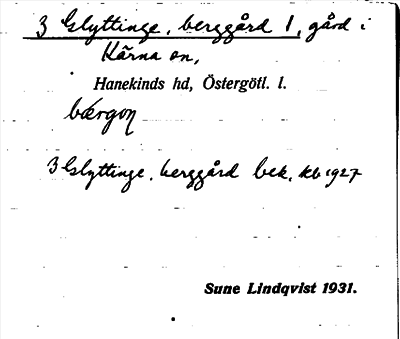 3 Glyttinge, berggård 1, gård i
Kärna sn,
Hanekinds hd, Östergötl. l.
bærgon
3 Glyttinge, berggård bek. kb 1927
Sune Lindqvist 1931.